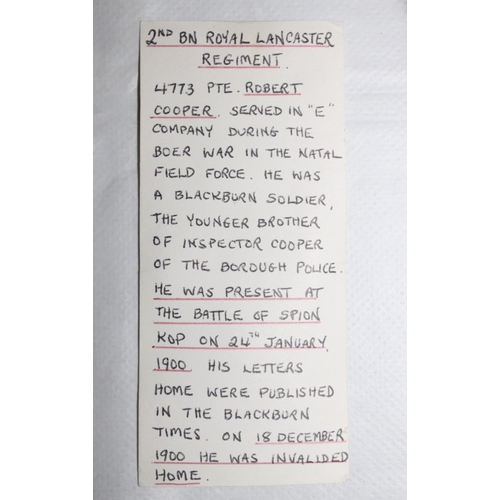 2ND BN ROYAL LANCASTER
REGIMENT.
4773 PTE. ROBERT
COOPER. SERVED IN "E"
COMPANY DURING THE
BOER WAR IN THE NATAL
FIELD FORCE. HE WAS
A BLACKBURN SOLDIER,
THE YOUNGER BROTHER
OF INSPECTOR COOPER
OF THE BOROUGH POLICE.
HE WAS PRESENT AT
THE BATTLE OF SPION
KOP ON 24TH JANUARY,
1900. HIS LETTERS
HOME WERE PUBLISHED
IN THE BLACKBURN
TIMES. ON 18 DECEMBER
1900 HE WAS INVALIDED
HOME.